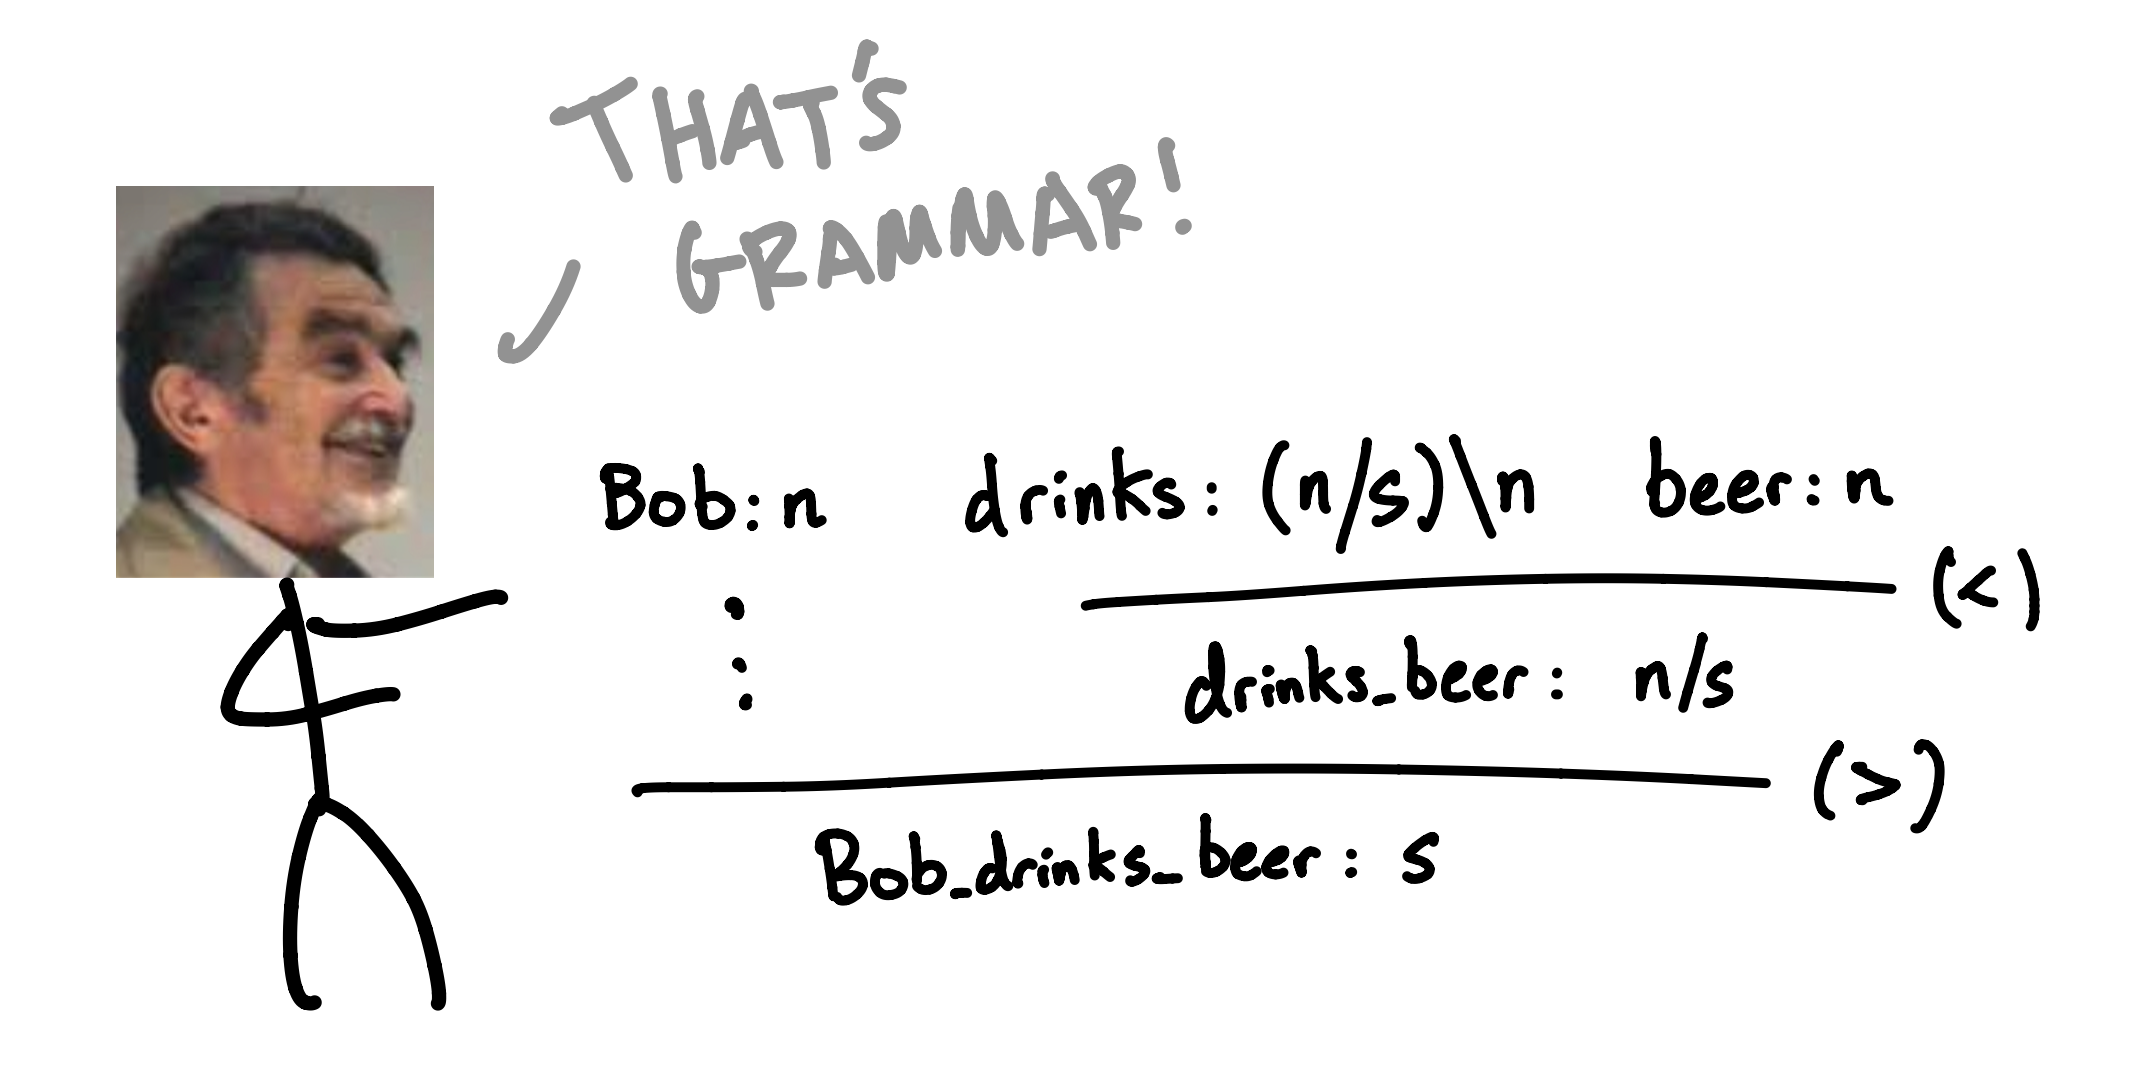 THAT'S
GRAMMAR!
Bob: n drinks: (n/s)\n beer: n
(<)
drinks_beer: n/s
(>)
Bob_drinks_beer: s